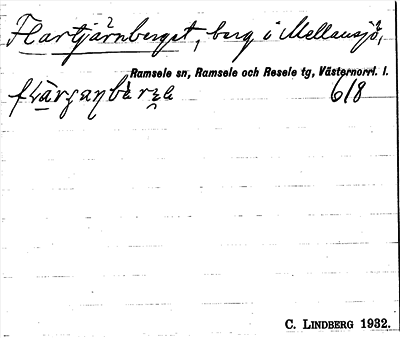 Flartjärnberget, berg i Mellansjö,
Ramsele sn, Ramsele och Resele tg, Västernorrl. l.
6/8
C. LINDBERG 1932.